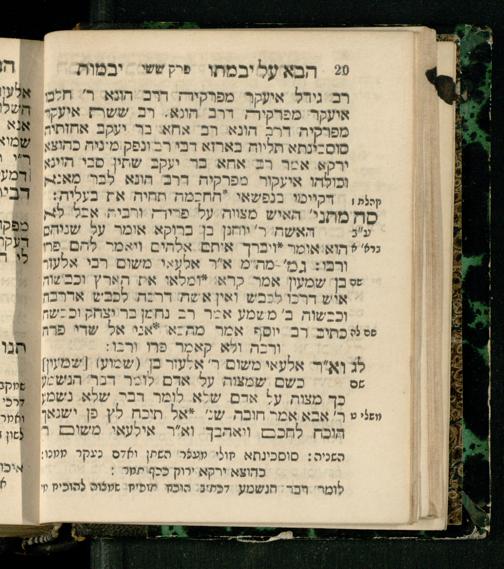 20 הבא על יבמתו פרק ששי יבמות
רב גידל איעקר מפרקיה דרב הונא ר' חלבו
איעקר מפרקיה דרב הונא. רב ששת איעקר
מפרקיה דרב הונא רב אחא בר יעקב אחזתיה
סוסכינתא תליוה בארזא דבי רב ונפק מיניה כהוצא
ירקא אמר רב אחא בר יעקב שתין סבי הוינא
וכולהו איעקור מפרקיה דרב הונא לבר מאנא
דקיימו בנפשאי *החכמה תחיה את בעליה:
קהלת ז
סה מתני' האיש מצווה על פריה ורביה אבל לא
ע"ב האשה ר' יוחנן בן ברוקא אומר על שניהם
ברא' א הוא אומר *ויברך איתם אלהים ויאמר להם פרו
ורבו: גמ' מה"מ א"ר אלעאי משום רבי אלעזר
שם בן שמעון אמר קרא *ומלאו את הארץ וכבשוה
איש דרכו לכבש ואין אשה דרכה לכבש אדרבה
וכבשוה ב' משמע אמר רב נחמן בר יצחק וכבשה
שם לה כתיב רב יוסף אמר מהכא *אני אל שדי פרה
ורבה ולא קאמר פרו ורבו:
לג וא"ר אלעאי משום ר' אלעזר בן (שמוע) [שמעון]
שם כשם שמצוה על אדם לומר דבר הנשמע
כך מצוה על אדם שלא לומר דבר שלא נשמע
משלי ט ר' אבא אמר חובה שנ' *אל תוכח לץ פן ישנאך
הוכח לחכם ויאהבך וא"ר אילעאי משום ר
השניה: סוסכינתא חולי
כהוצא ירקא ירוק ככף תמר:
לומר דבר הנשמע דכתיב הוכח תוכיח